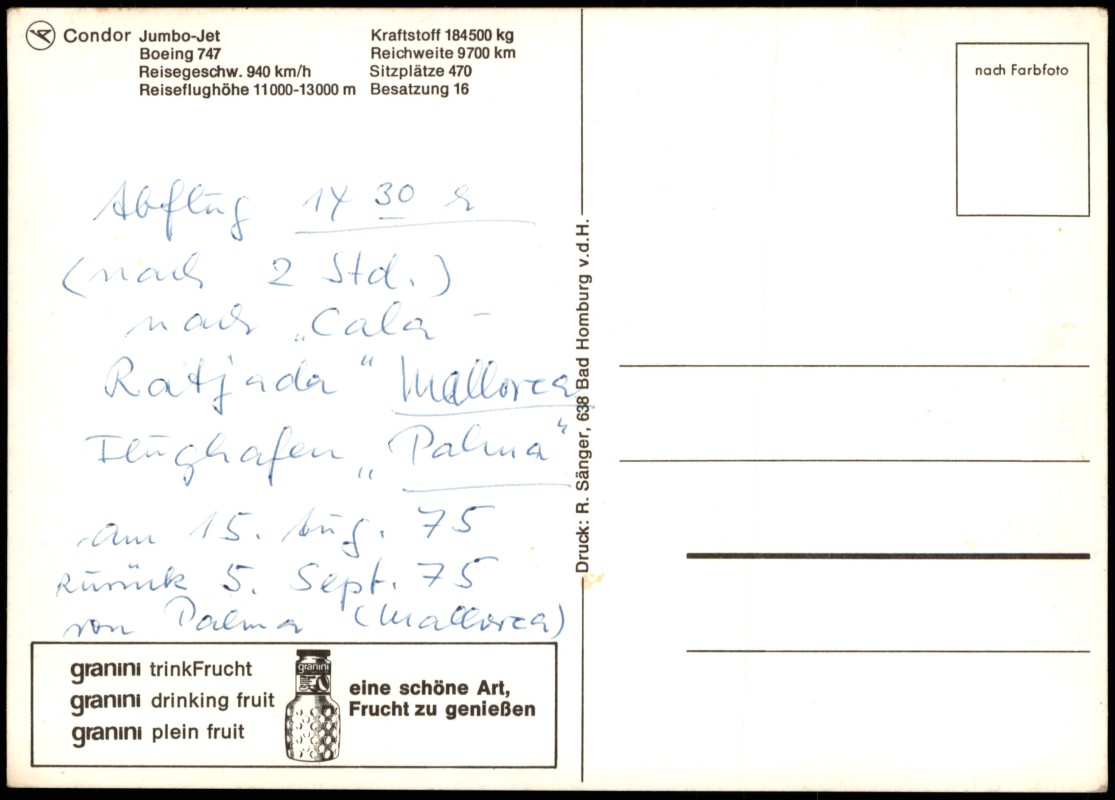 Condor Jumbo-Jet
Boeing 747
Reisegeschw. 940 km/h
Reiseflughöhe 11000-13000 m
Kraftstoff 184500 kg
Reichweite 9700 km
Sitzplätze 470
Besatzung 16
nach Farbfoto
Abflug 14 30
(nach 2 Std.)
nach „Cala-
Ratjada“ Mallorca
Flughafen „Palma“
am 15. Aug. 75
zurück 5. Sept. 75
von Palma (Mallorca)
Druck: R. Sänger, 638 Bad Homburg v.d.H.
granini trinkFrucht
granini drinking fruit
granini plein fruit
granini
eine schöne Art,
Frucht zu genießen